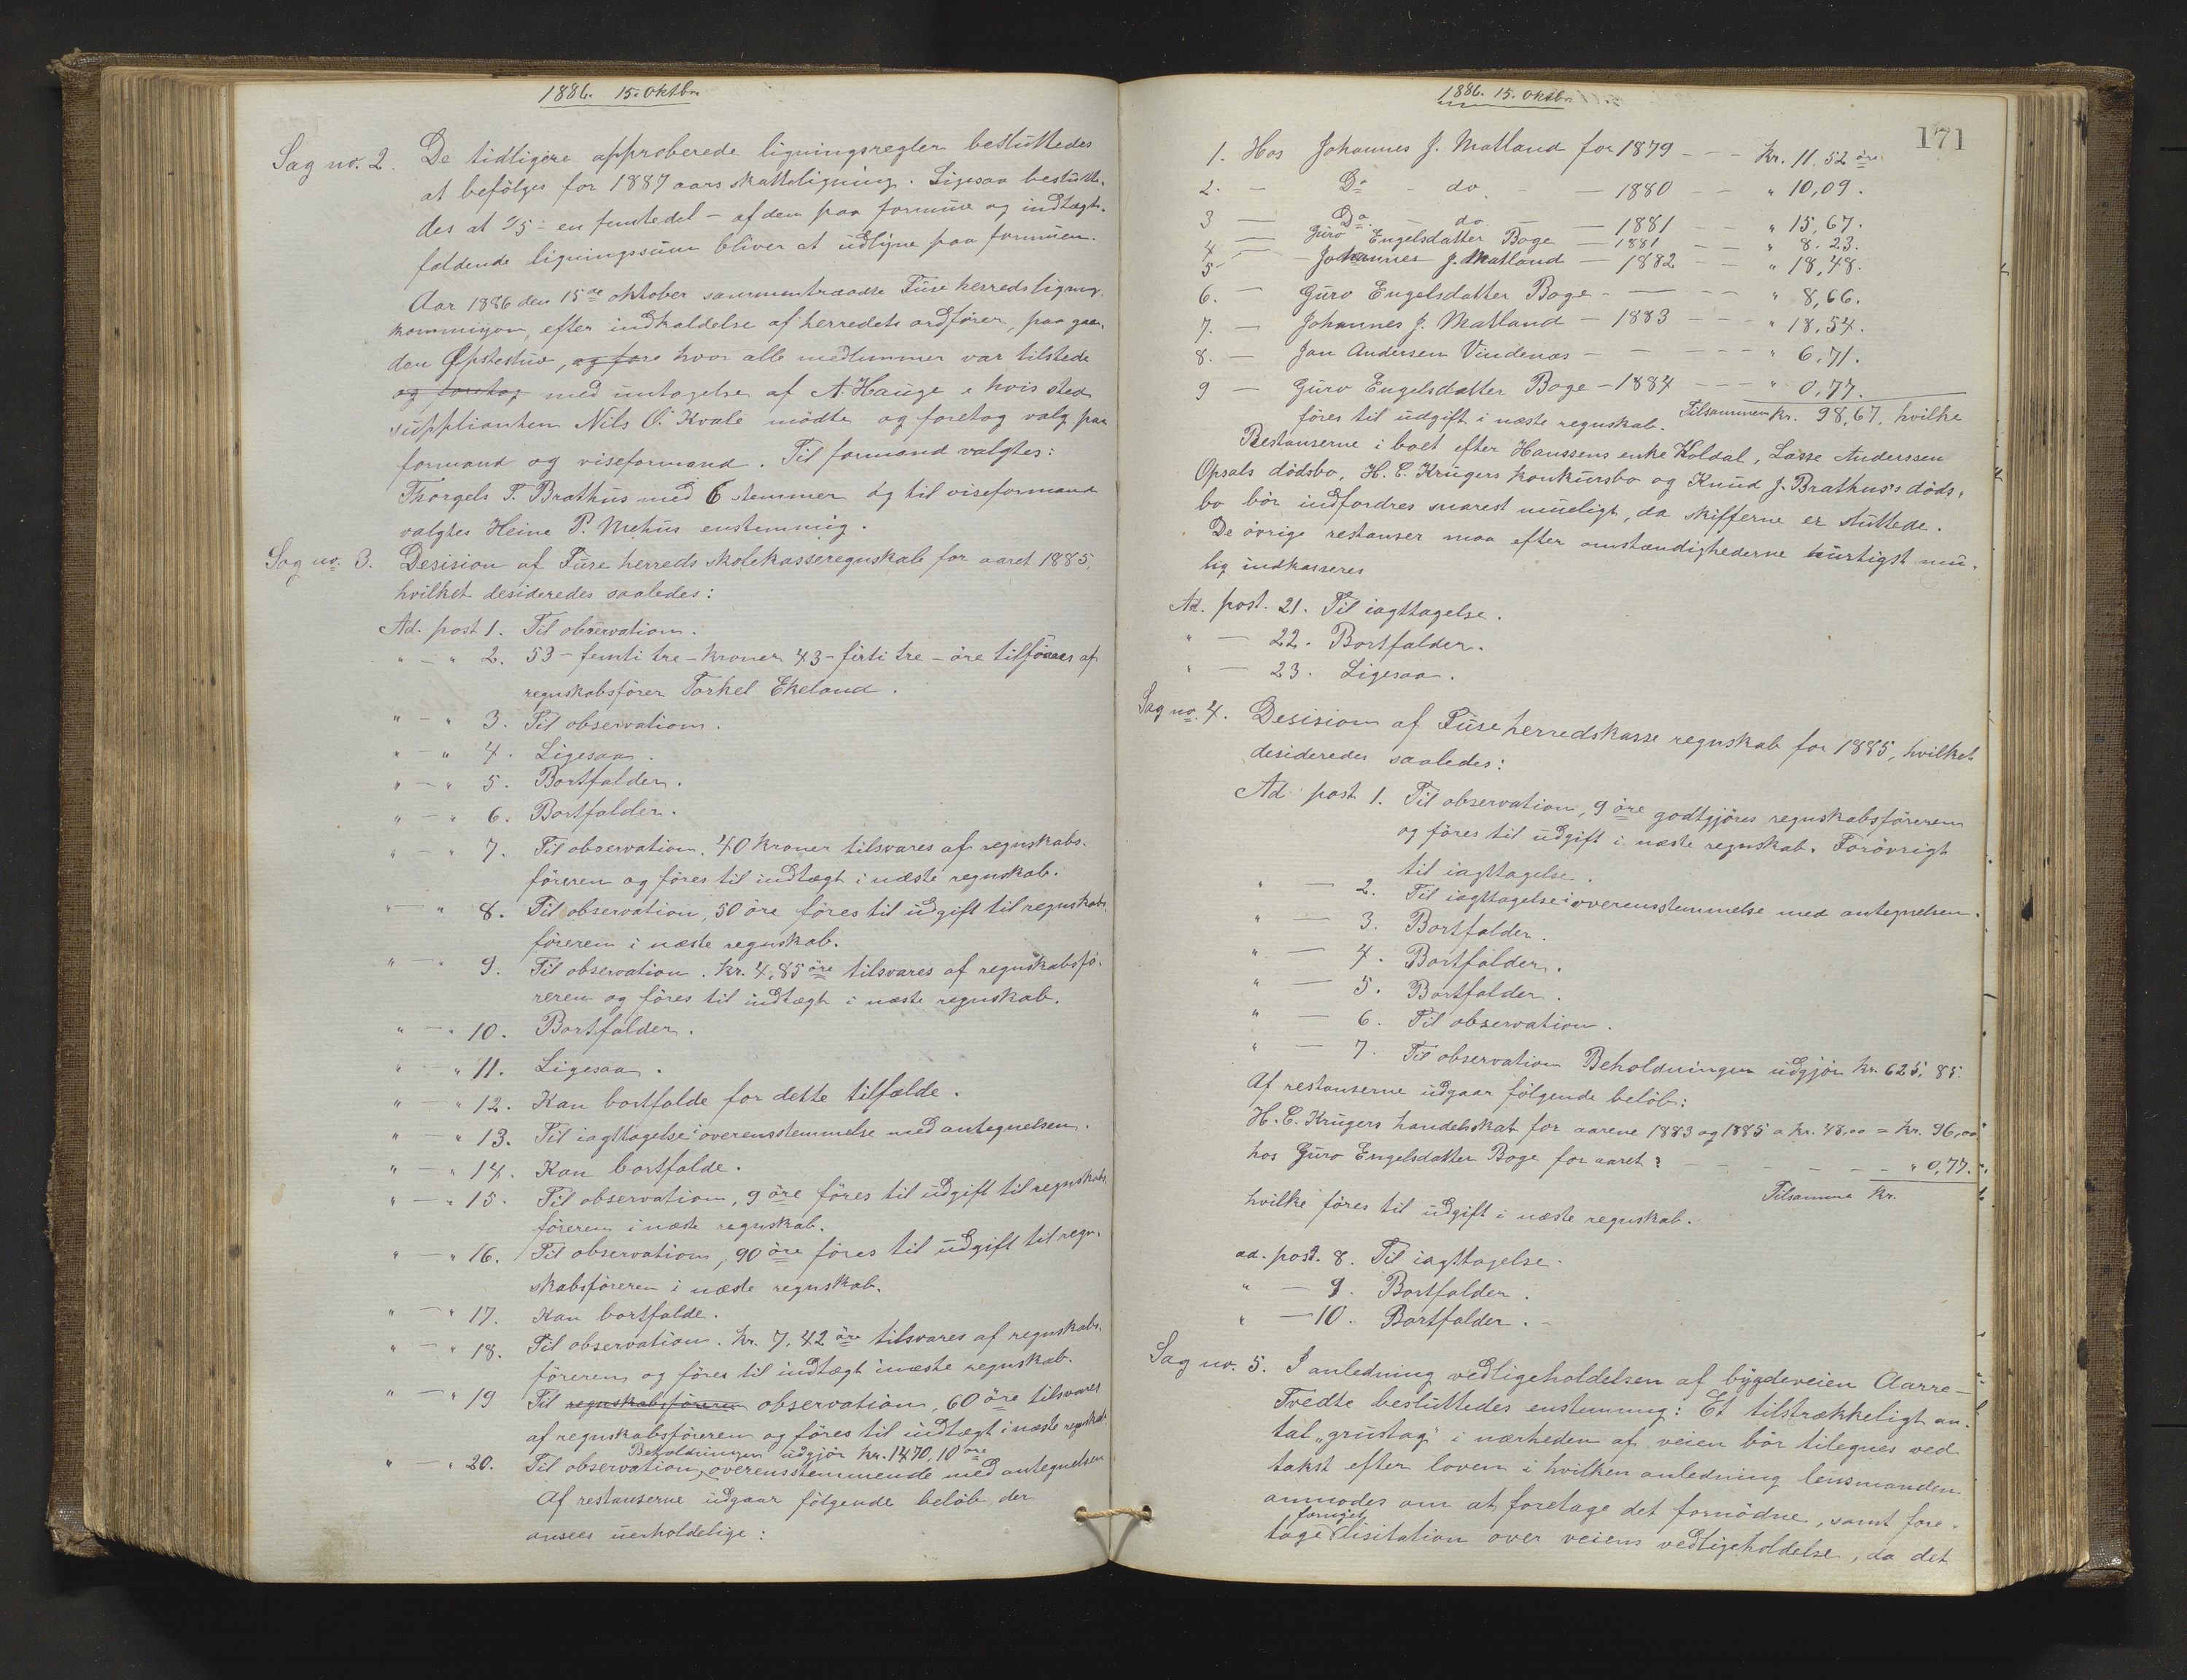 1886. 15. Oktbr.
Sag no. 2. De tidligere approberede ligningsregler besluttedes
at befölges for 1887 aars skatteligning. Ligesaa beslutte-
des at 1/5 - en femtedel - af den paa formue og indtægt
faldende ligningssum bliver at udligne paa formuen.
Aar 1886 den 15de oktober sammentraadte Fuse herreds lignings
kommisjon, efter indkaldelse af herredets ordförer, paa gaar-
den Opstestuv, og fore hvor alle medlemmer var tilstede
og foretog med untagelse af A. Hauge i hvis sted
supplianten Nils O. Kvale mödte og foretog valg paa
formand og viseformand. Til formand valgtes:
Thorgels T. Brathus med 6 stemmer og til viseformand
valgtes Heine P. Mehus enstemmig.
Sag no. 3. Desision af Fuse herreds skolekasseregnskab for aaret 1885,
hvilket desideredes saaledes:
Ad. post 1. Til observation.
" - " 2. 53 - femti tre - kroner 43 - firti tre - öre tilföres af
regnskabsförer Torkel Ekeland.
" - " 3. Til observation.
" - " 4. Ligesaa.
" - " 5. Bortfalder.
" - " 6. Bortfalder.
" - " 7. Til observation. 40 kroner tilsvares af regnskabs-
föreren og föres til indtægt i næste regnskab.
" - " 8. Til observation, 50 öre föres til udgift til regnskabs
föreren i næste regnskab.
" - " 9. Til observation. kr. 4,85 öre tilsvares af regnskabsfö-
reren og föres til indtægt i næste regnskab.
" - " 10. Bortfalder.
" - " 11. Ligesaa.
" - " 12. Kan bortfalde for dette tilfælde.
" - " 13. Til iagttagelse i overensstemmelse med antegnelsen.
" - " 14. Kan bortfalde.
" - " 15. Til observation, 9 öre föres til udgift til regnskabs
föreren i næste regnskab.
" - " 16. Til observation, 90 öre föres til udgift til regn-
skabsföreren i næste regnskab.
" - " 17. Kan bortfalde.
" - " 18. Til observation. kr. 7,42 öre tilsvares af regnskabs-
föreren og föres til indtægt i næste regnskab.
" - " 19 Til regnskabsföreren observation, 60 öre tilsvares
af regnskabsföreren og föres til indtægt i næste regnskab
Beholdningen udgjör kr. 1470,10 öre
" - " 20. Til observation, overensstemmende med antegnelsen
Af restanserne udgaar fölgende belöb, der
ansees uerholdelige:
1886. 15. Oktbr.
171
1. Hos Johannes J. Matland for 1879 - - kr. 11,52 öre
2. - Do - do - - 1880 - - " 10,09.
3 - Do do - 1881 - - " 15,67.
4 - Guro Engelsdatter Boge - 1881 - - " 8,23.
5 - Johannes J. Matland - 1882 - - " 18,48.
6. - Guro Engelsdatter Boge - - - - " 8,66.
7. - Johannes J. Matland - 1883 - - - " 18,54.
8. - Jan Andersen Vindenæs - - - - - " 6,71.
9 - Guro Engelsdatter Boge - 1884 - - - " 0,77.
Tilsammen kr. 98,67, hvilke
föres til udgift i næste regnskab.
Restanserne i boet efter Hanssens enke Koldal, Lasse Anderssen
Opsals dödsbo, H. C. Krügers konkursbo og Knud J. Brathus's döds-
bo bör indfordres snarest mueligt, da skifterne er sluttede.
De övrige restanser maa efter omstændighederne hurtigst mu-
lig indkasseres
Ad. post. 21. Til iagttagelse.
" - 22. Bortfalder.
" - 23. Ligesaa.
Sag no. 4. Desision af Fuse herredskasse regnskab for 1885, hvilket
desideredes saaledes:
Ad post 1. Til observation, 9 öre godtgjöres regnskabsföreren
og föres til udgift i næste regnskab. Forövrigt
til iagttagelse.
" - 2. Til iagttagelse i overensstemmelse med antegnelsen.
" - 3. Bortfalder.
" - 4. Bortfalder.
" - 5. Bortfalder.
" - 6. Til observation.
" - 7. Til observation Beholdningen udgjör kr. 625,85.
Af restanserne udgaar fölgende belöb:
H. C. Krügers handelsskat for aarene 1883 og 1885 a kr. 48,00 = kr. 96,00
hos Guro Engelsdatter Boge for aaret ? - - - - - - " 0,77.
Tilsamme kr.
hvilke föres til udgift i næste regnskab.
ad. post. 8. Til iagttagelse.
" - 9. Bortfalder.
" - 10. Bortfalder. -
Sag no. 5. I anledning vedligeholdelsen af bygdeveien Aarre-
Tvedte besluttedes enstemmig: Et tilstrækkeligt an-
tal "grustag" i nærheden af veien bör tilegnes ved
takst efter loven i hvilken anledning lensmanden
anmodes om at foretage det fornödne, samt fore-
fornyet
tage lisitation over veiens vedligeholdelse, da det